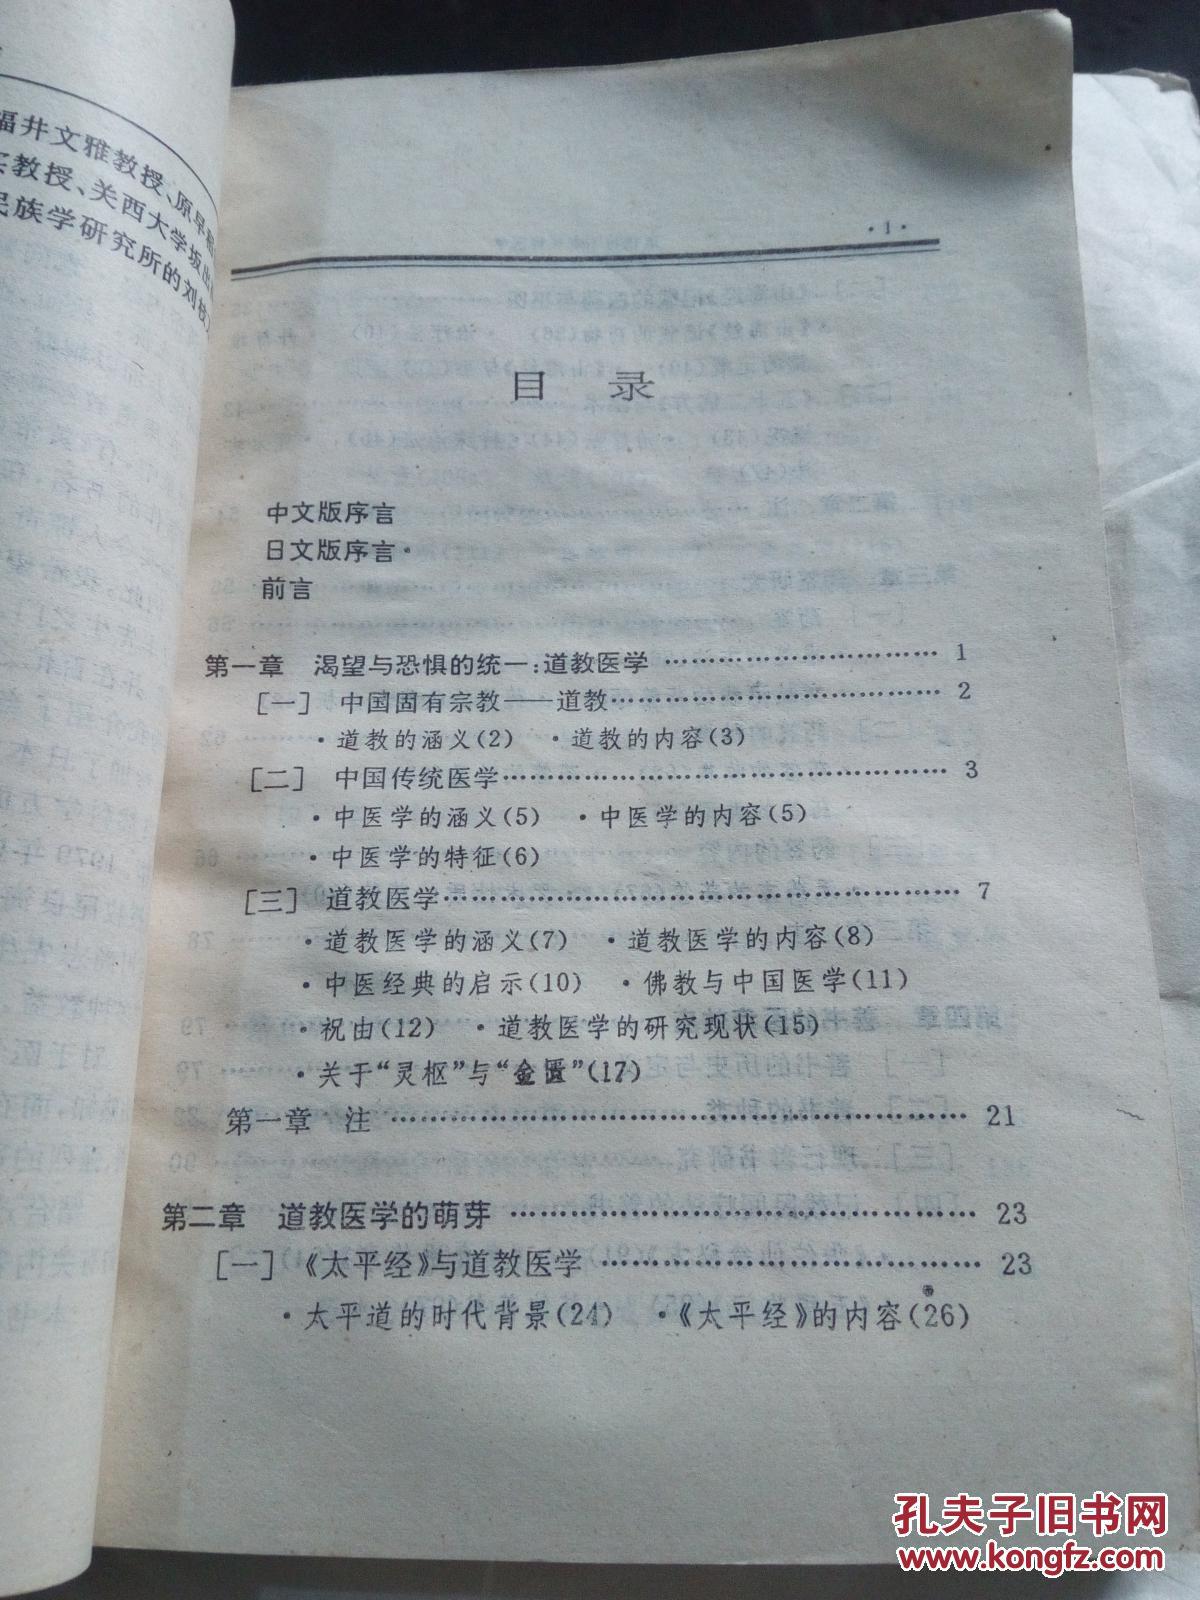 福井文雅教授、原早
教授、关西大学坂出
民族学研究所的刘枝
·1·
目 录
中文版序言
日文版序言
前言
第一章 渴望与恐惧的统一:道教医学 …… 1
[一] 中国固有宗教——道教 …… 2
·道教的涵义(2) ·道教的内容(3)
[二] 中国传统医学 …… 3
·中医学的涵义(5) ·中医学的内容(5)
·中医学的特征(6)
[三] 道教医学 …… 7
·道教医学的涵义(7) ·道教医学的内容(8)
·中医经典的启示(10) ·佛教与中国医学(11)
·祝由(12) ·道教医学的研究现状(15)
·关于“灵枢”与“金匮”(17)
第一章 注 …… 21
第二章 道教医学的萌芽 …… 23
[一]《太平经》与道教医学 …… 23
·太平道的时代背景(24) ·《太平经》的内容(26)
孔夫子旧书网
www.kongfz.com